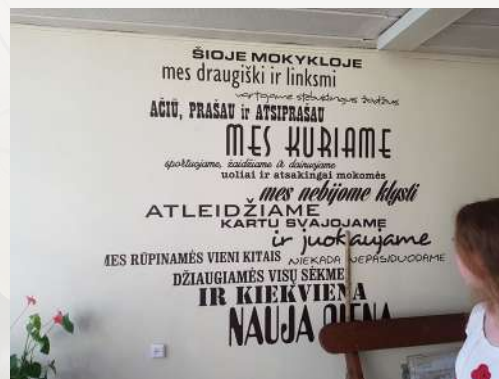 ŠIOJE MOKYKLOJE
mes draugiški ir linksmi
vartojame stebuklingus žodžius
AČIŪ, PRAŠAU ir ATSIPRAŠAU
MES KURIAME
sportuojame, žaidžiame ir dainuojame
uoliai ir atsakingai mokomės
mes nebijome klysti
ATLEIDŽIAME
KARTU SVAJOJAME
ir juokaujame
MES RŪPINAMĖS VIENI KITAIS NIEKADA NEPASIDUODAME
DŽIAUGIAMĖS VISŲ SĖKME
IR KIEKVIENA
NAUJA DIENA